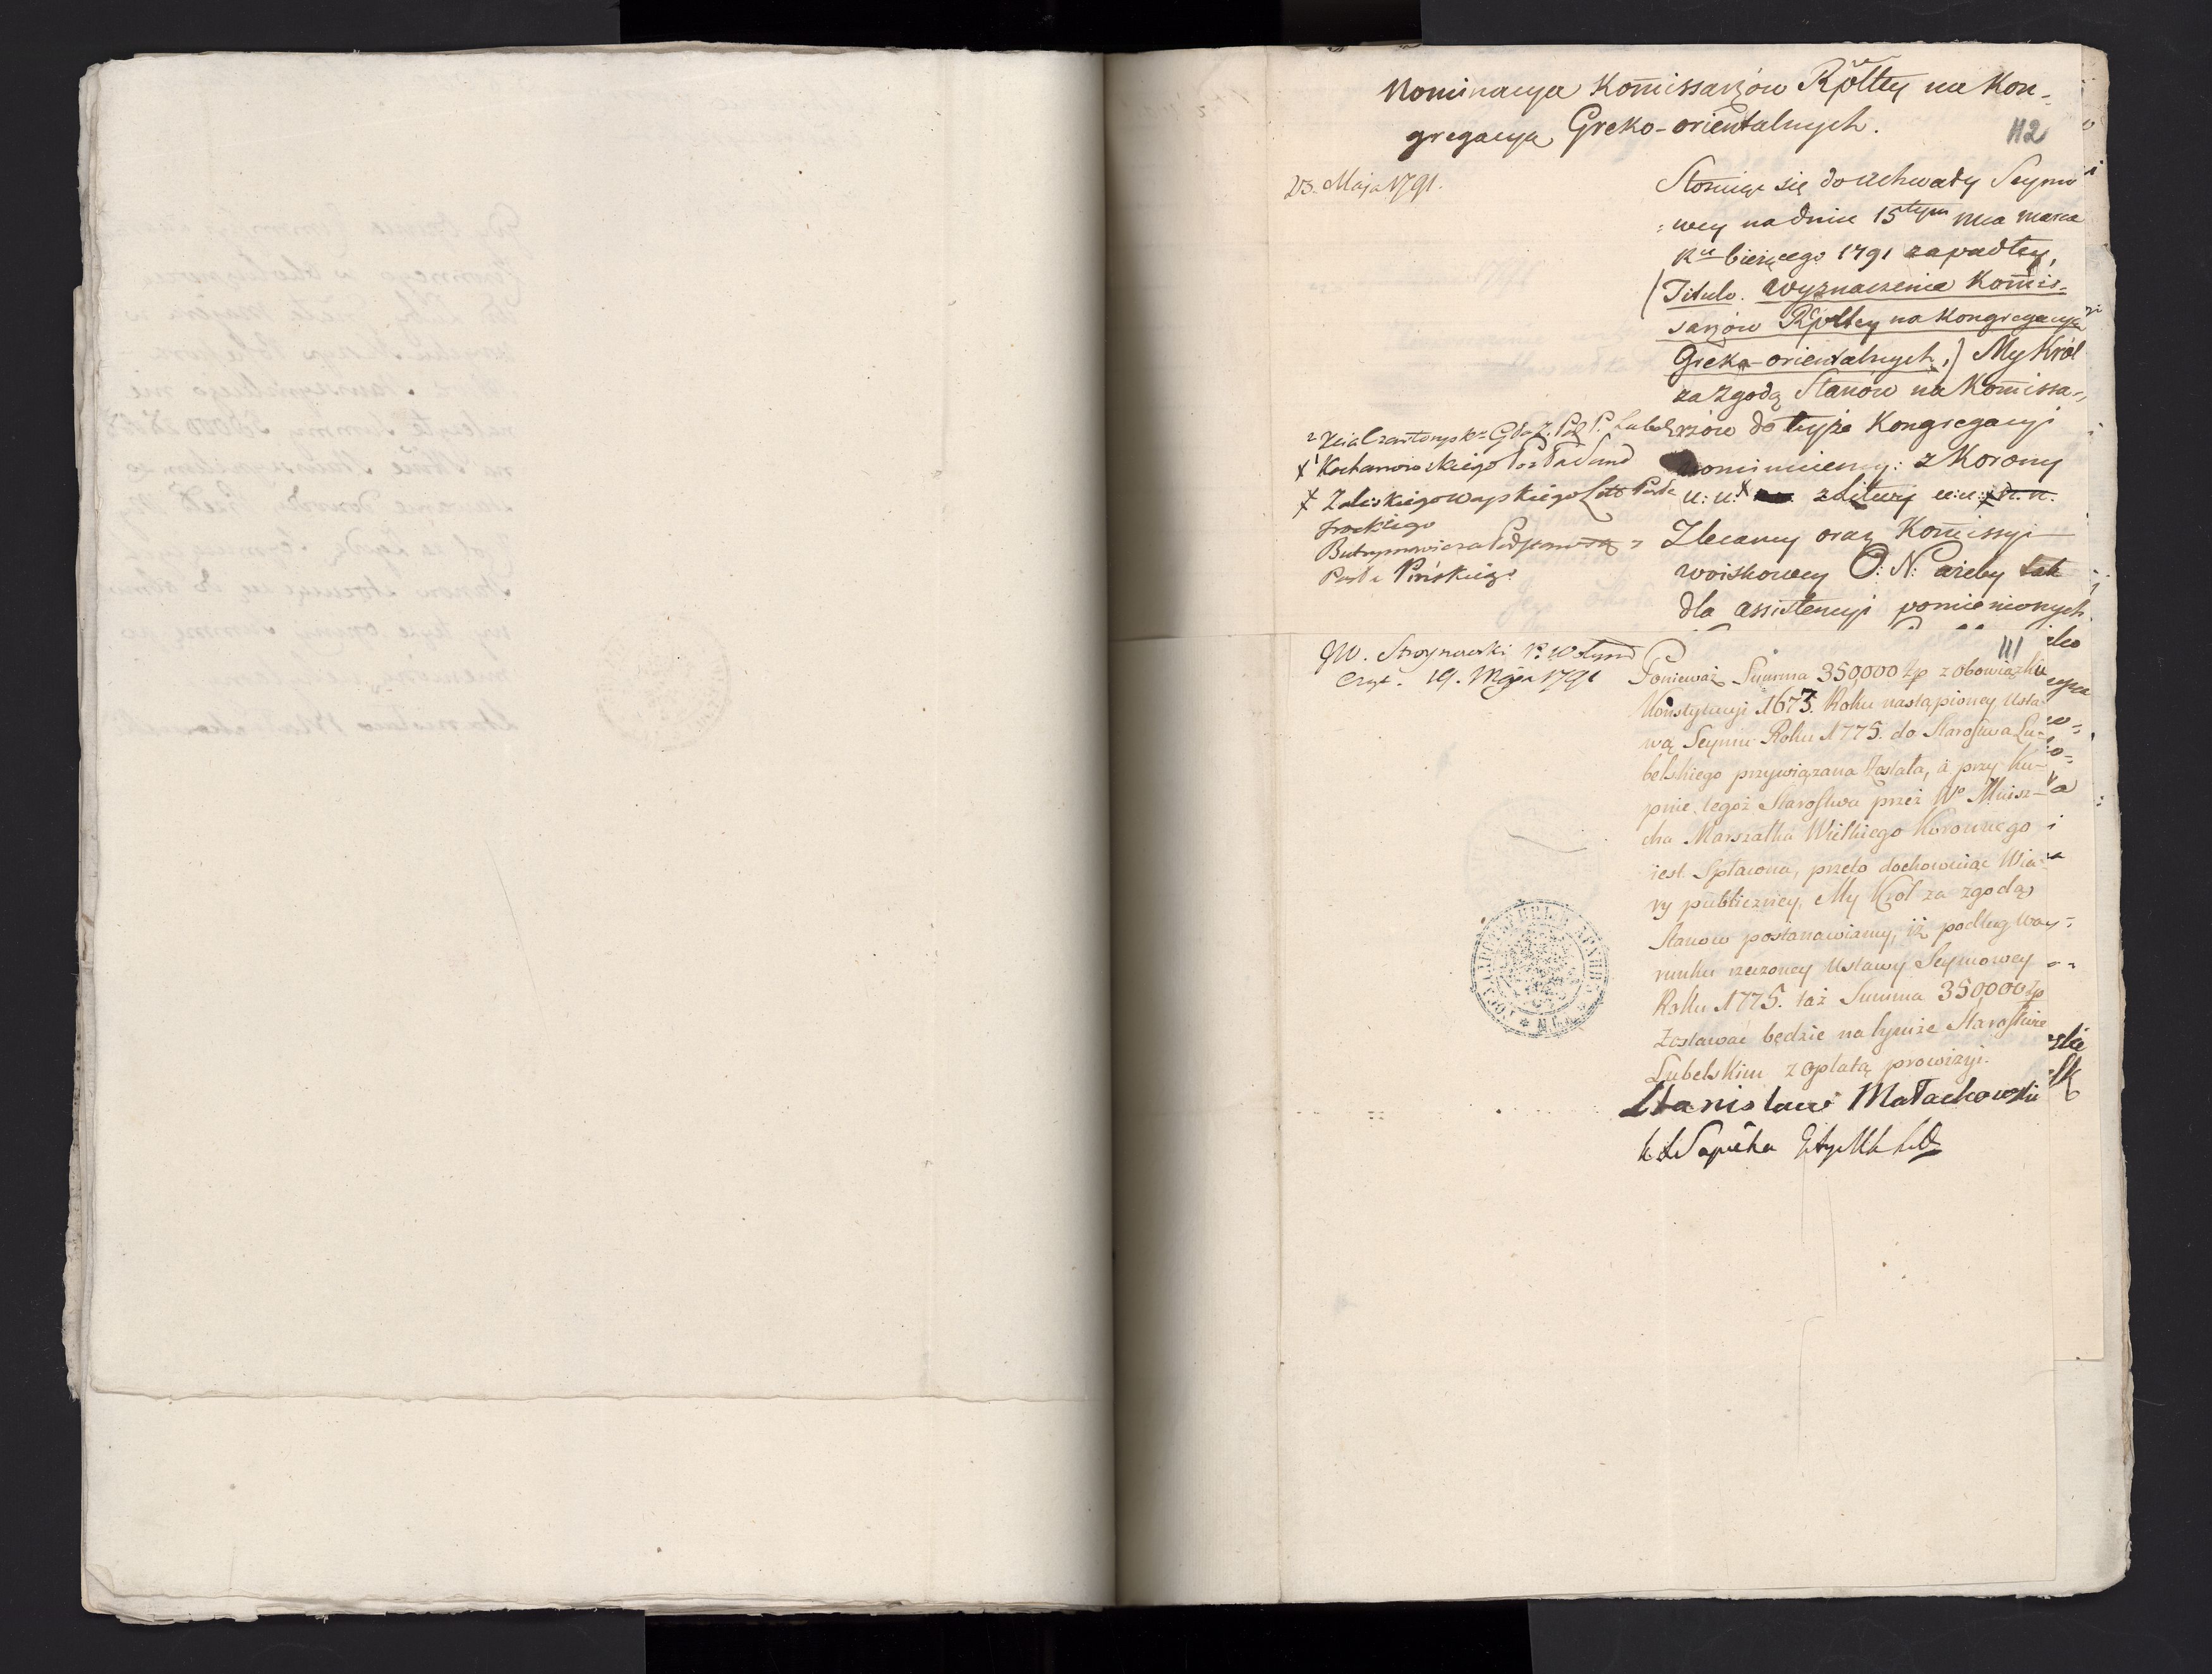 Nominacya Kommissarzów Rpltey na Kon-
gregacyą Greko-orientalnych.
112
23. Maja 1791.
Stosuiąc się do uchwały Seymo
wey na dniu 15tym Mca marca
Ru bieżącego 1791 zapadłey,
(Titulo. Wyznaczenie Kommis-
sarzów Rpltey na Kongregacyą
Greko-orientalnych,) My Król
za zgodą Stanów na Kommissa-
rzów do tyże Kongregacyi
nominuiemy: z Korony
u: u: z Litwy u: u: n. n.
Zlecamy oraz Kommissyi
woiskowey O: N: ażeby tak
dla assistencyi pomienionych
2 Xcia Czartorysk G Z. P. Lubel
x 1 Kochanowskiego Posła Sand
x Zaleskiego Woyskiego Litt Posła
Trockiego
Butrymowicza Podstarost
Posła Pińskiego
111
JW. Stroynowski P. Wołynd
Czyt. 19. Maja 1791
Ponieważ Summa 350,000 Zp z obowiązku
Konstytucyi 1673. Roku nastąpioney Usta-
wą Seymu Roku 1775. do Starostwa Lu-
belskiego przywiązana została, a przy Ku-
pnie tegoż Starostwa przez We Mnisz-
cha Marszałka Wielkiego Koronnego
iest Spłacona, przeto dochowuiąc Wia-
ry publiczney, My Król za zgodą
Stanow postanawiamy, iż podług War-
runku rzeczoney Ustawy Seymowey
Roku 1775. taż Summa 350,000 Zp
Zostawać będzie na tymże Starostwie
Lubelskim z opłatą prowizyi.
Stanisław Małachowski
K N Sapieha